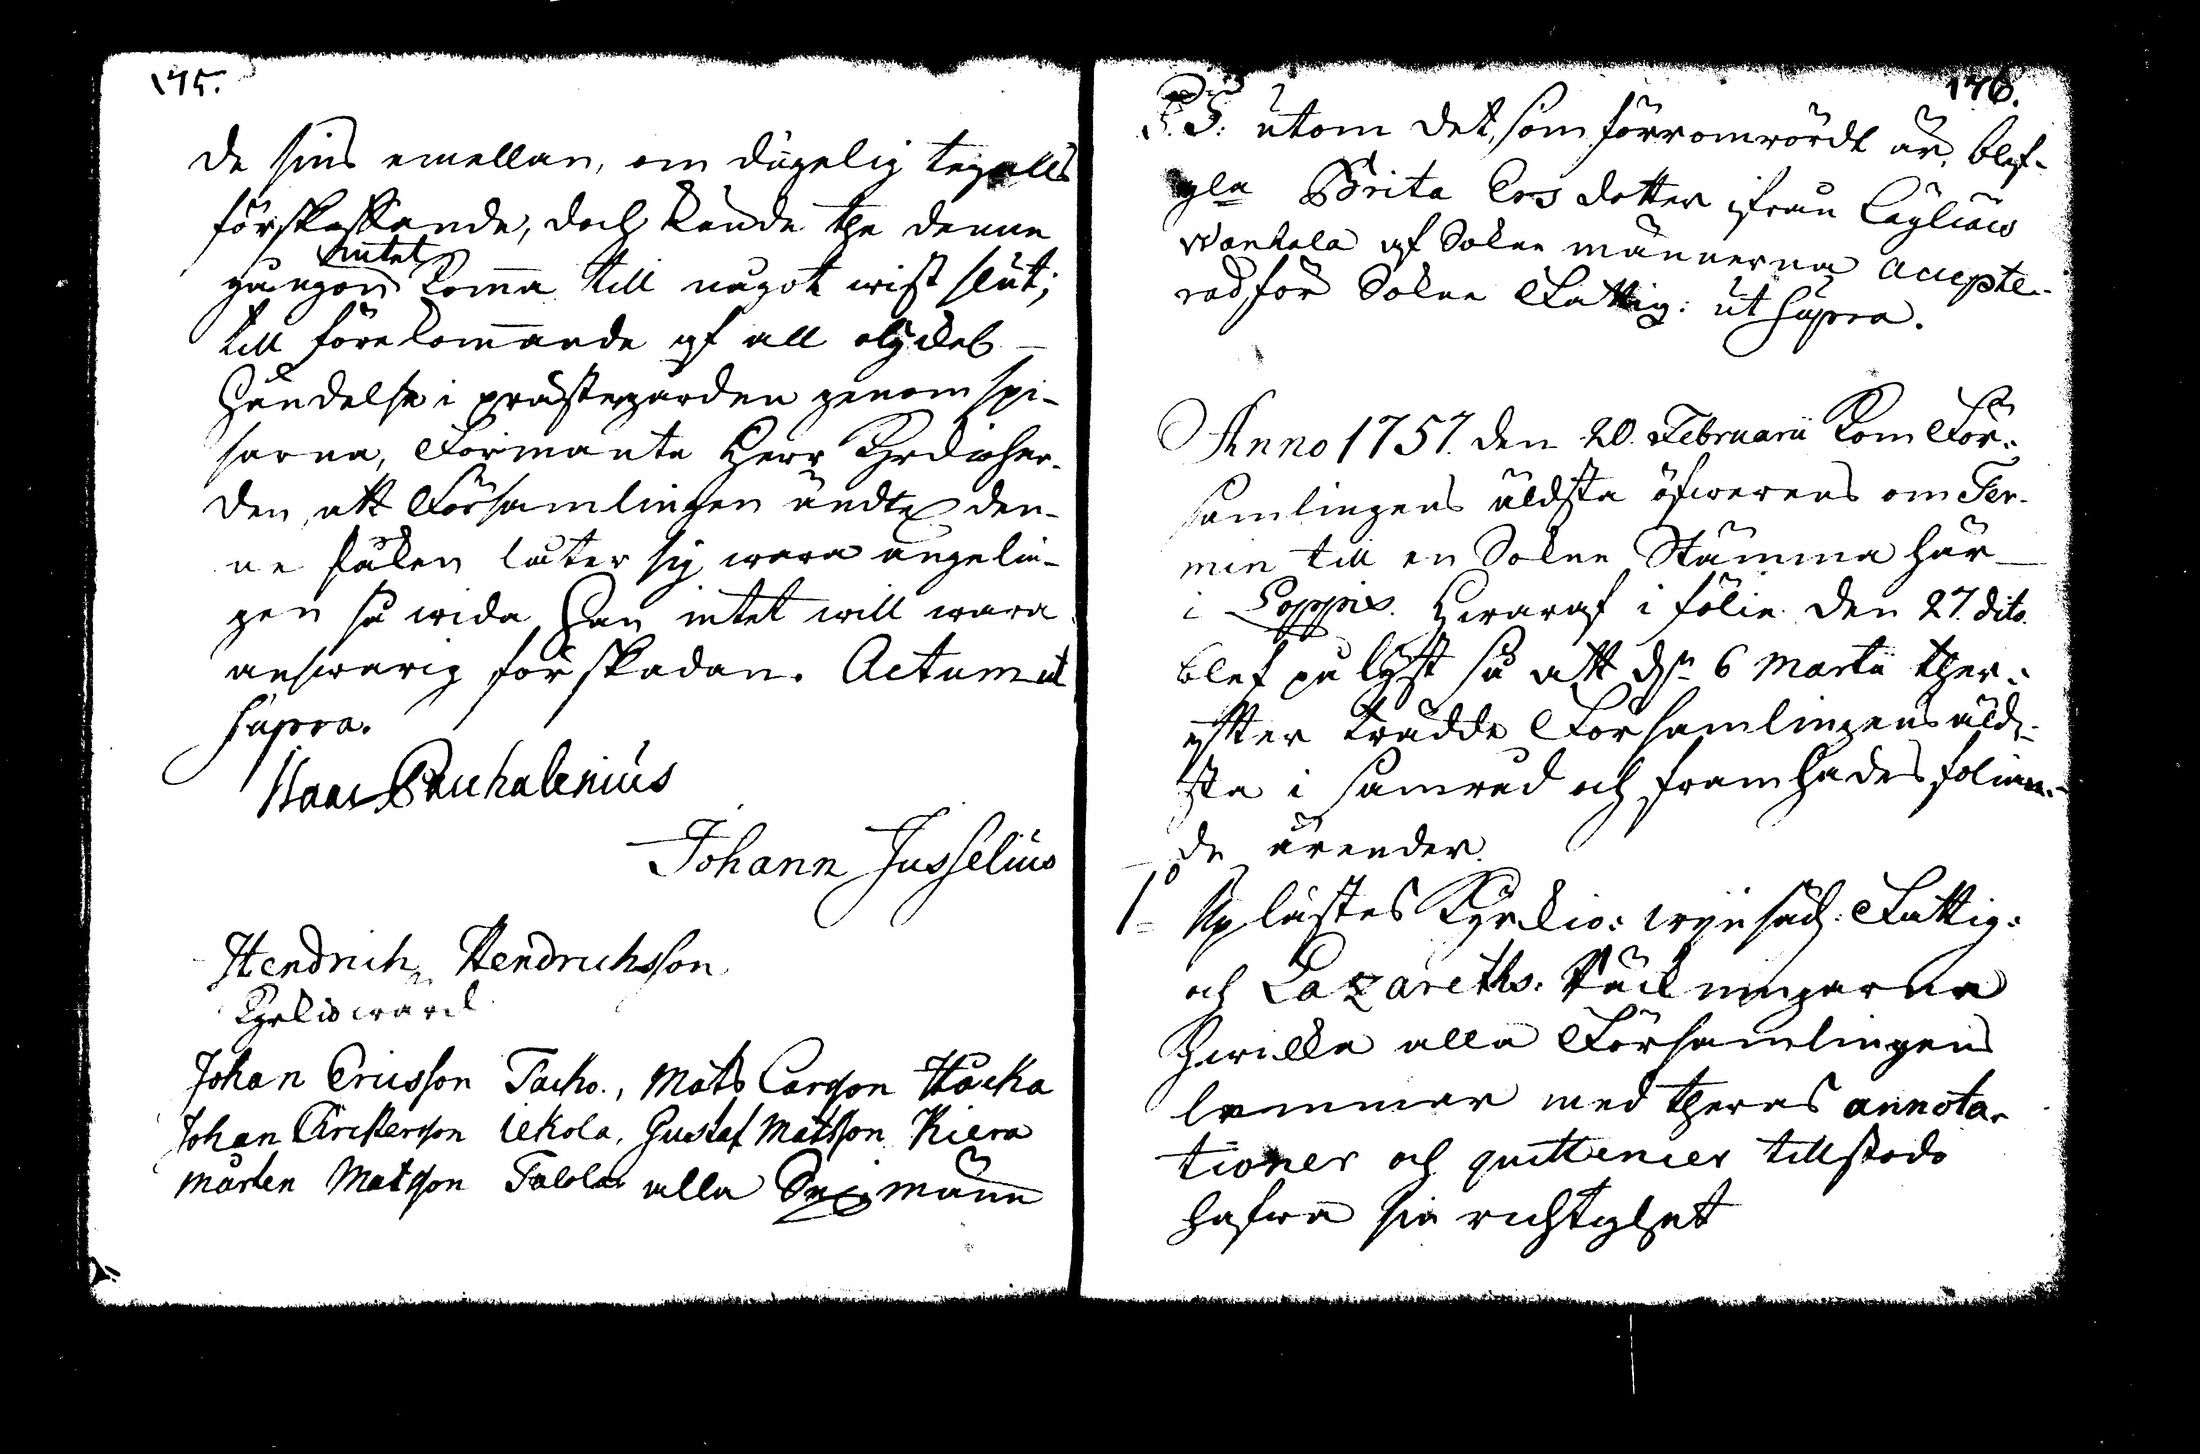 175.
de sins emellan, om dugelig tegells
förskaffande, doch kunde the denne
intet
gången komma till något wist slut;
till förekommande af all olyckel
händelse i prästegården genom spi-
sarna, förmante Herr Kyrckioher-
den, att Församlingen ändtel den-
ne saken låter sig wara angelä-
gen så wida han intet will wara
answarig för skadan. Actum ut
supra.
Isaac Pachalenius
Johann Jusselius
Hendrich Hendrichsson
Kyrkiowärd
Johan Ericsson Tacko., Mats Carlsson Håcka
Johan Christersson Uckola, Gustaf Matsson Kiera
Mårten Matsson Talola alla Sexmänn
176.
P.S: utom det, som förr omrördt är, blef
gla Brita Ers dotter ifrån Cäyliäis
Wanhala af Sokne männerna accepte-
rad för Sokne Fattig: ut supra.
Anno 1757. den 20. Februarii kom För-
samlingens äldsta öfwerens om Ter-
min till en Sokne Stämma här
i Loppis. Hwaraf i följe den 27. dito
blef pålyst så att dn 6 Martii ther-
efter trädde Församlingens äld-
sta i samråd och framhades följan-
de ärender.
1o Uplästes Kyrckio: wijnsäd: Fattig:
och Lazareths: Räckningarna
hwilka alla Församlingens
lemmar med theras annota-
tioner och quittencier tillstodo
hafwa sin richtighet